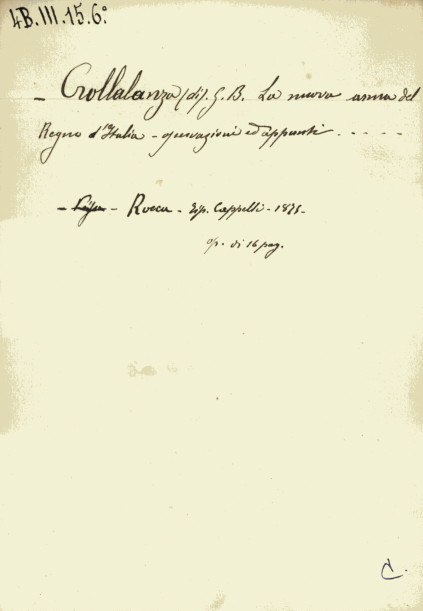 4B.III.15.6°
- Crollalanza (di). G. B. La nuova arma del
Regno d'Italia - osservazioni ed appunti . . . . .
- Pisa - Rocca - Tip. Cappelli - 1875 -
op. di 16 pag.
C.